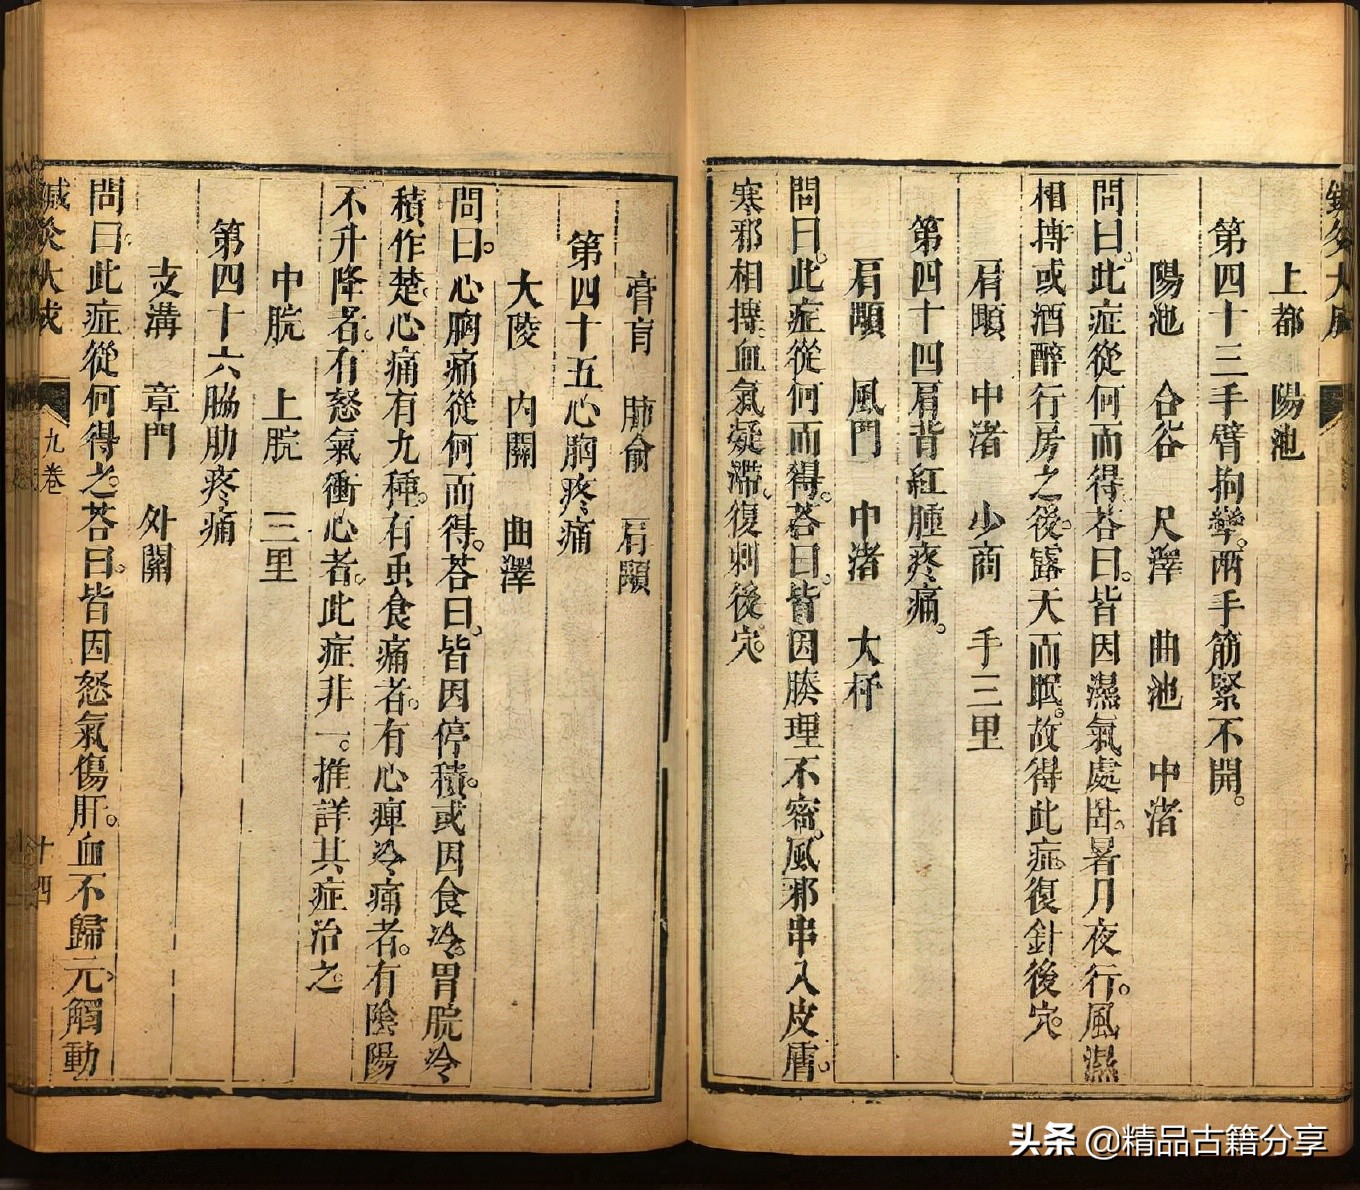 上都　陽池
第四十三手臂拘攣。兩手筋緊不開。
陽池　合谷　尺澤　曲池　中渚
問曰。此症從何而得。荅曰。皆因濕氣處臥。暑月夜行。風濕
相搏。或酒醉行房之後。露天而眠。故得此症。復針後穴。
肩顒　中渚　少商　手三里
第四十四肩背紅腫疼痛。
肩顒　風門　中渚　大杼
問曰。此症從何而得。荅曰。皆因腠理不密。風邪串入皮膚。
寒邪相搏。血氣凝滯。復刺後穴。
膏肓　肺俞　肩顒
第四十五心胸疼痛
大陵　內關　曲澤
問曰。心胸痛從何而得。荅曰。皆因停積。或因食冷。胃脘冷
積作楚。心痛有九種。有虫食痛者。有心痺冷痛者。有陰陽
不升降者。有怒氣衝心者。此症非一。推詳其症治之。
中脘　上脘　三里
第四十六脇肋疼痛
支溝　章門　外關
問曰。此症從何得之。荅曰。皆因怒氣傷肝。血不歸元。觸動
鍼灸大成
九卷
十四
头条 @精品古籍分享